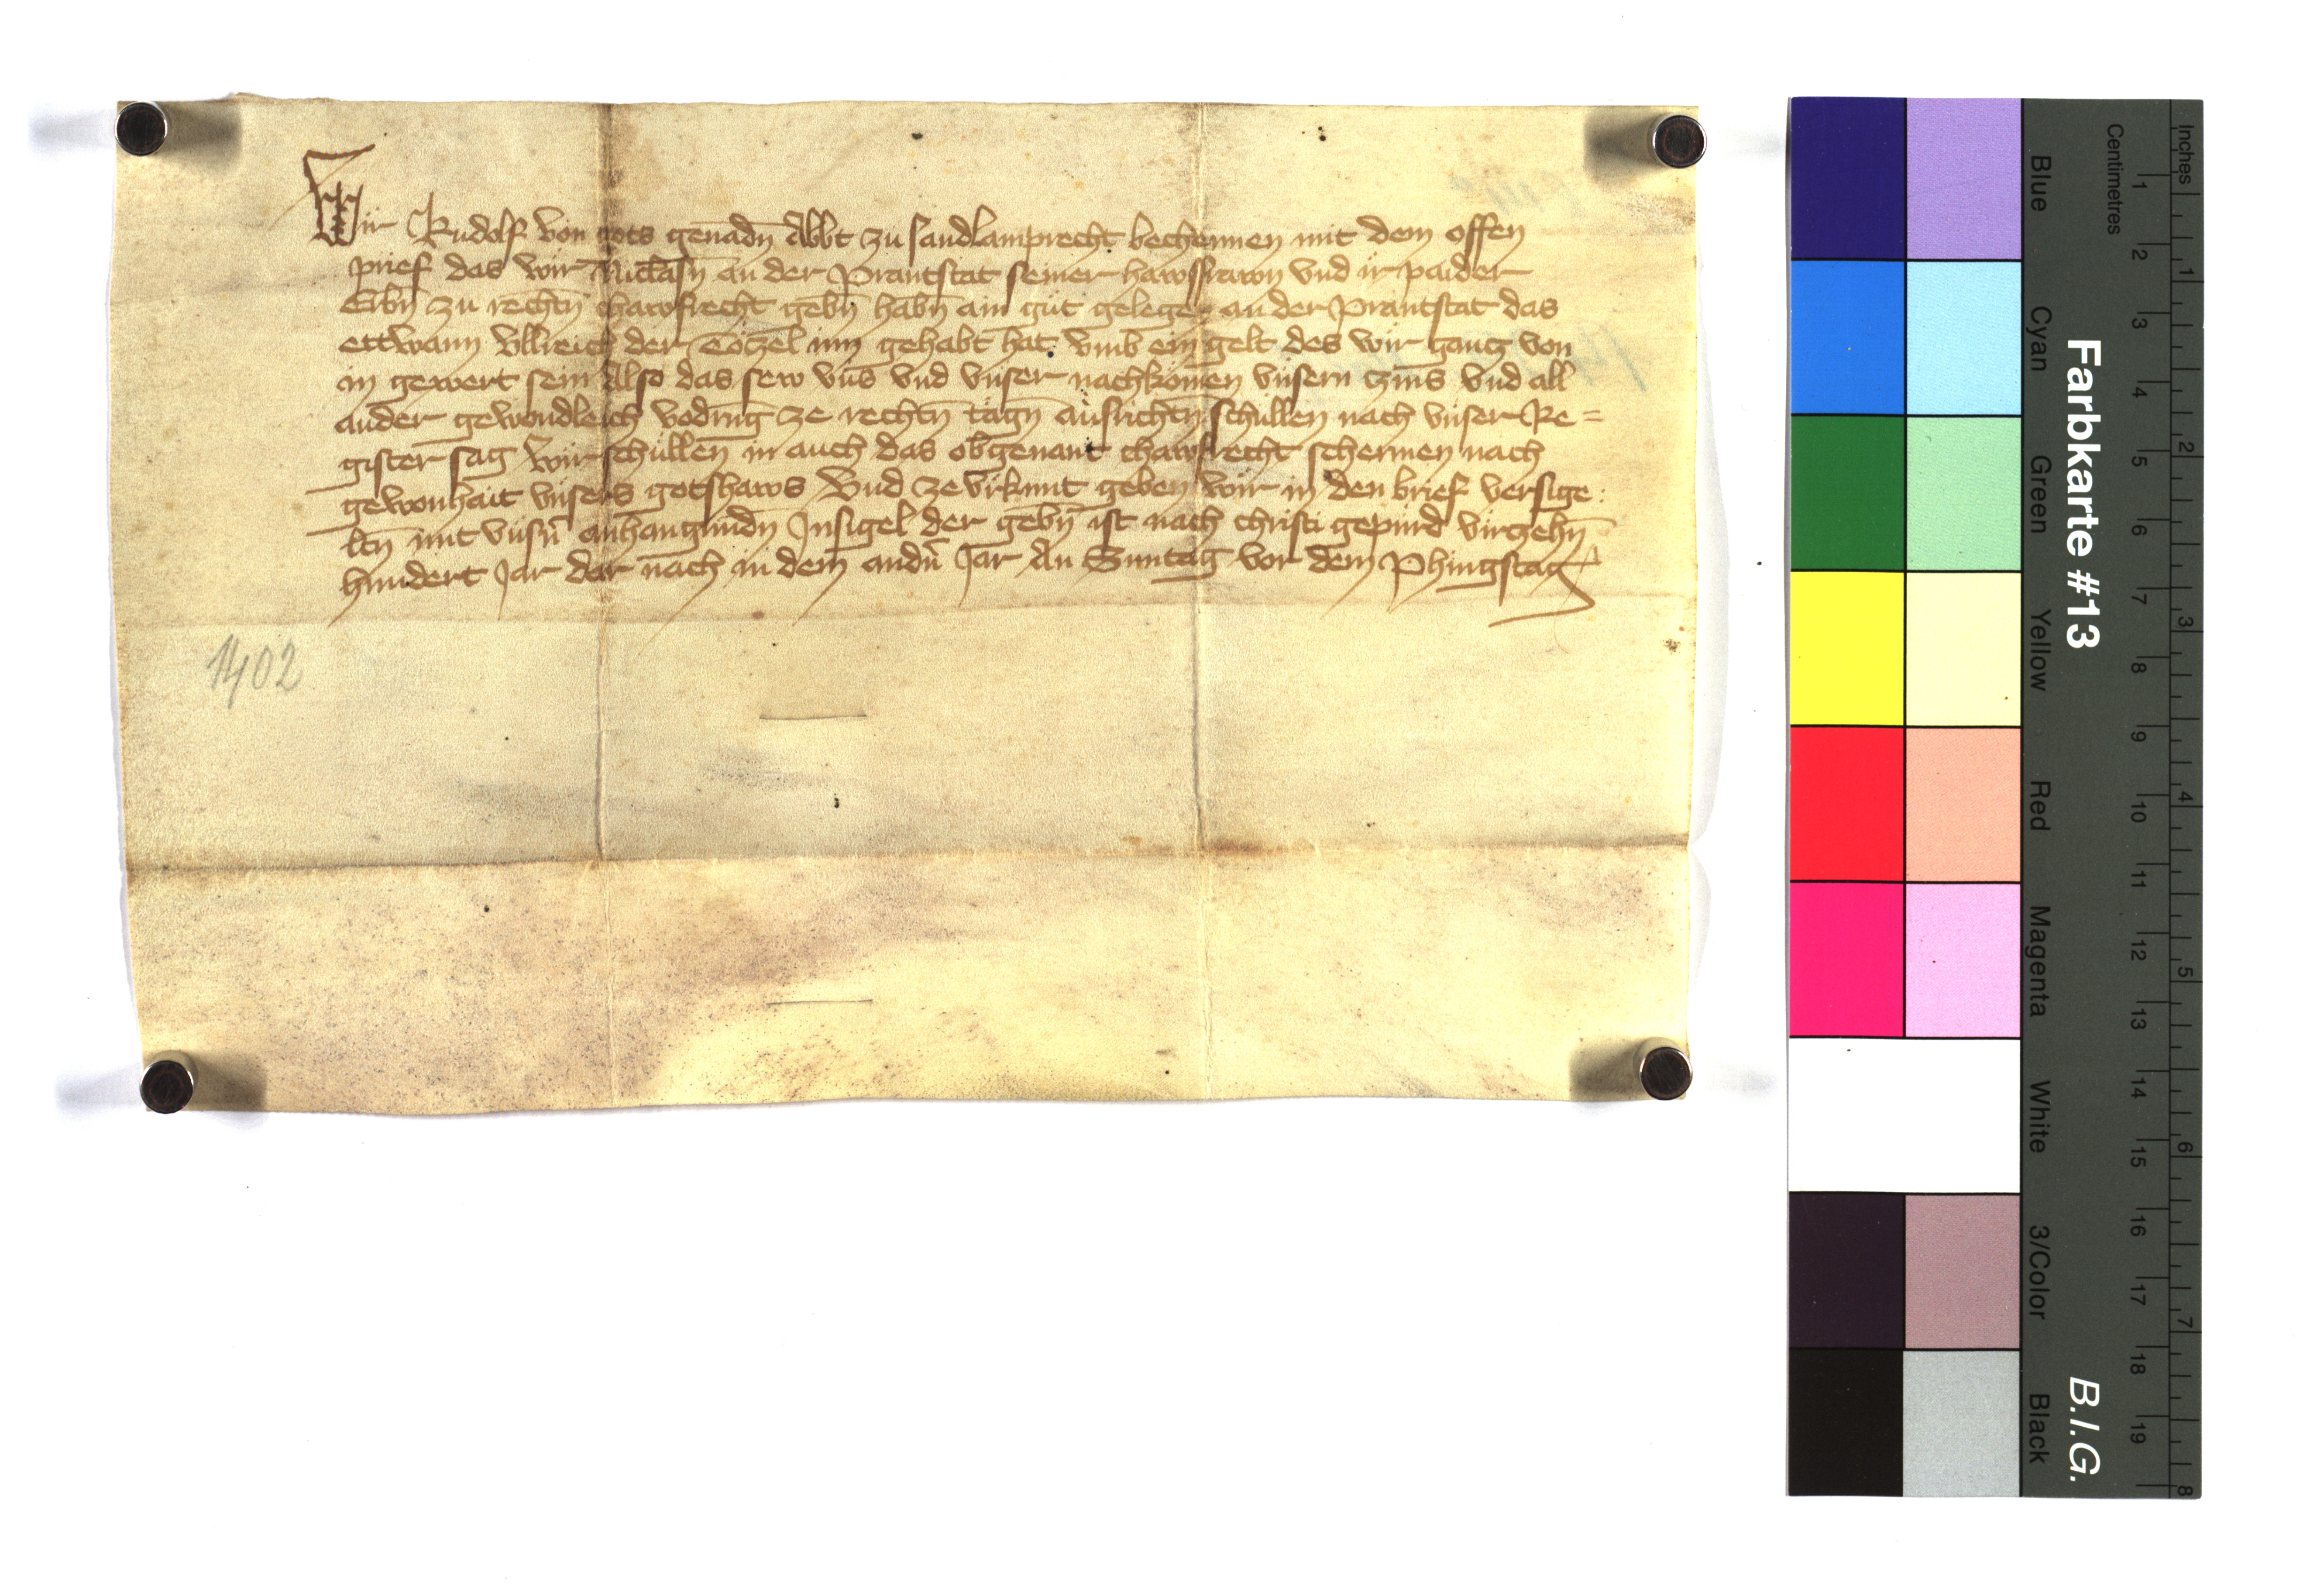 Wir Rudolf von gots genadn̄ Abbt zu sandlamprecht bechennen mit dem offen
prief das wir Niclasn̄ an der Prantstat seiner hawsfrawn vnd ir paider
Erbn̄ zu rechtn̄ chawfrecht gebn̄ habn̄ ain gut gelegen an der Prantstat das
ettwann Vllreich der Tötzel inn gehabt hat vmb ein gelt des wir gantz von
in gewert sein Also das sew vns vnd vnser nachkomen vnsern czins vnd all
ander gewondleich vodrūg ze rechtn̄ tagn̄ ausrichtn̄ schullen nach vnser Re=
gister sag Wir schullen in auch das obgenant chawfrecht schermen nach
gewonhait vnsers gotshaws Vnd ze vrkunt geben wir in den brief versige:
ltn̄ mit vnsn̄ anhangundn̄ Insigel der gebn̄ ist nach christi gepurd virczehn̄
hundert Jar dar nach in dem andn̄ Jar An Suntag vor dem Phingstag
1402
Farbkarte #13
B.I.G.
Blue Cyan Green Yellow Red Magenta White 3/Color Black
Centimetres
1 2 3 4 5 6 7 8 9 10 11 12 13 14 15 16 17 18 19
Inches
1 2 3 4 5 6 7 8